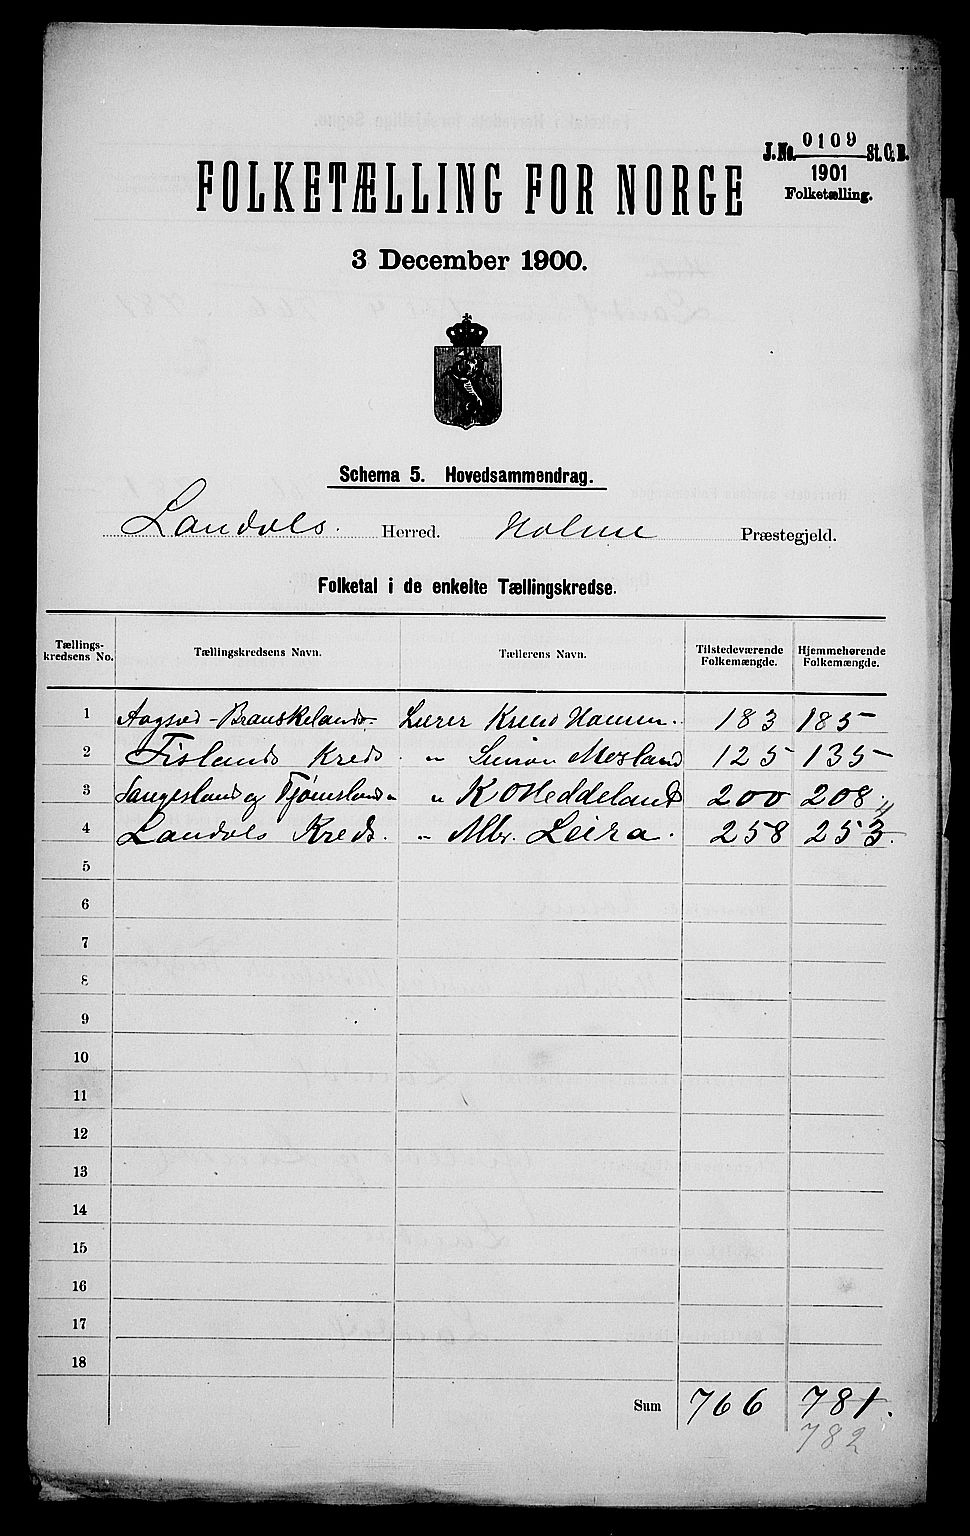 J.No. 0109 St.C.B.
1901
Folketælling.
FOLKETÆLLING FOR NORGE
3 December 1900.
Schema 5. Hovedsammendrag.
Landvls. Herred. Holme Præstegjeld.
Folketal i de enkelte Tællingskredse.
Tællings-kredsens No. Tællingskredsens Navn. Tællerens Navn. Tilstedeværende Folkemængde. Hjemmehørende Folkemængde.
1 183 185
2 Fislands Kreds " Mesland 125 135
3 og " K. O Heddeland 200 208
4 Landvls Kreds. " Leira. 258 253. 4
5
6
7
8
9
10
11
12
13
14
15
16
17
18
Sum 766 781.
782